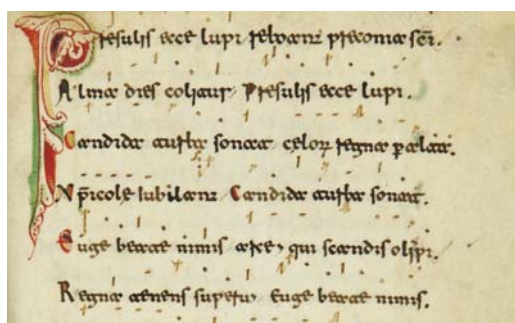 Presulis ecce lupi reboant preconia sci.
Alma dies colitur Presulis ecce lupi.
Candida turba sonat celoꝝ regna
Xp̄icole iubilant Candida turba sonat.
Euge beate nimis arce qui scandis olīpi.
Regna tenens superū Euge beate nimis.